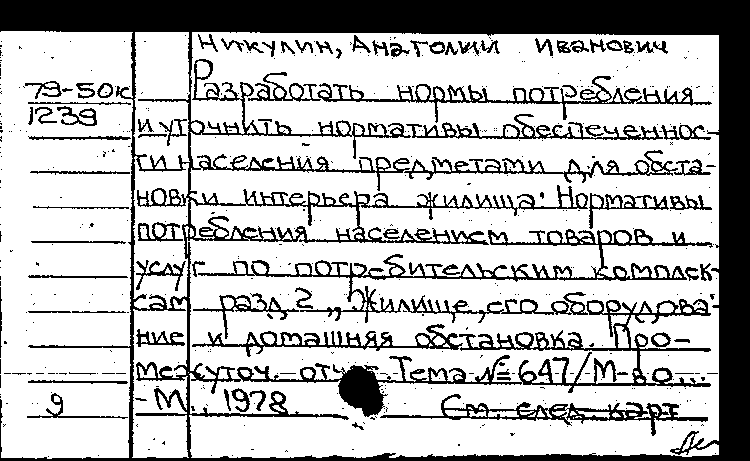 Никулин, Анатолий Иванович
79-50к Разработать нормы потребления
1239 и уточнить нормативы обеспеченнос-
ти населения предметами для обста-
новки интерьера жилища: Нормативы
потребления населением товаров и
услуг по потребительским комплек-
сам разд. 2 „Жилище, его оборудова-
ние и домашняя обстановка. Про-
межуточ. отчет. Тема № 647/М-
9 -М., 1978. См. след. карт